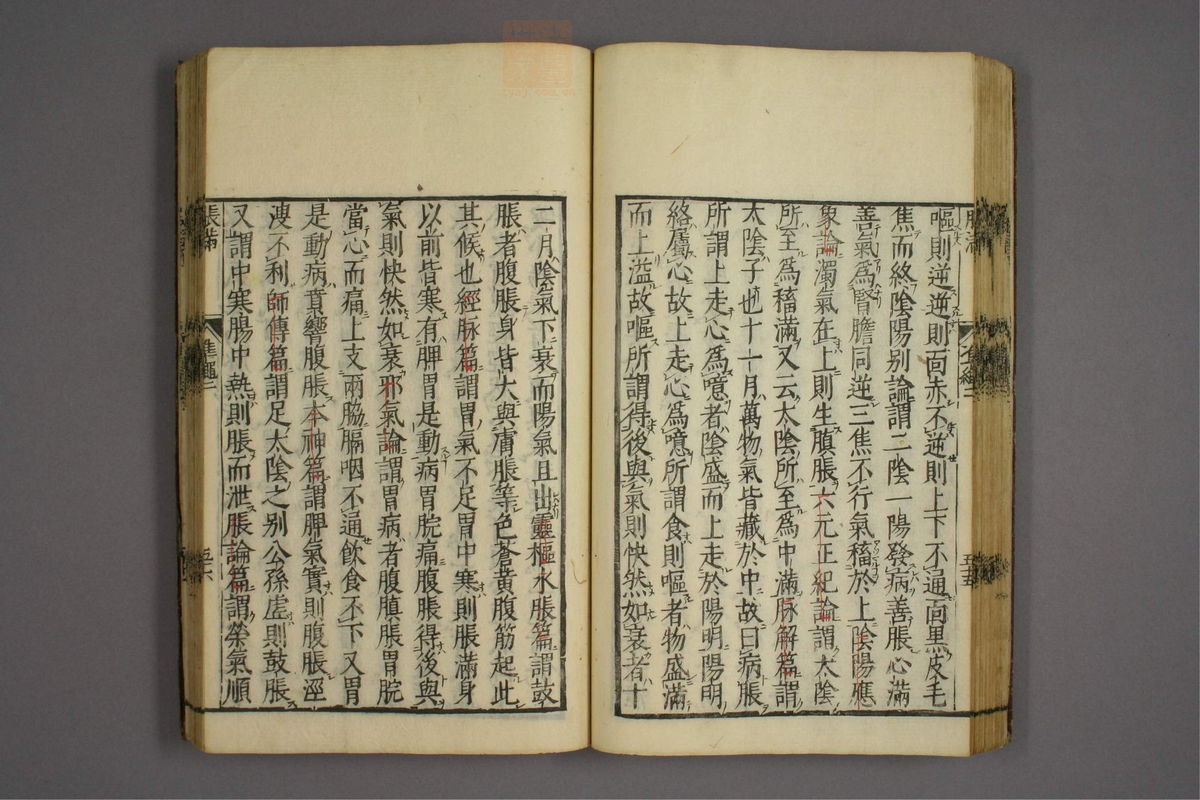 嘔則逆逆則面赤不逆則上下不通面黒皮毛
焦而終陰陽別論謂二陰一陽發病善脹心滿
善氣爲腎膽同逆三焦不行氣稸於上陰陽應
象論濁氣在上則生䐜脹六元正紀論謂太陰
所至爲稸滿又云太陰所至爲中滿脉解篇謂
太陰子也十一月萬物氣皆藏於中故曰病脹
所謂上走心爲噫者陰盛而上走於陽明陽明
絡屬心故上走心爲噫所謂食則嘔者物盛滿
而上溢故嘔所謂得後與氣則快然如衰者十
二月陰氣下衰而陽氣且出靈樞水脹篇謂鼓
脹者腹脹身皆大與膚脹等色蒼黃腹筋起此
其候也經脉篇謂胃氣不足胃中寒則脹滿身
以前皆寒有脾胃是動病胃脘痛腹脹得後與
氣則快然如衰邪氣論謂胃病者腹䐜脹胃脘
當心而痛上支兩脇膈咽不通飲食不下又胃
是動病賁響腹脹本神篇謂脾氣實則腹脹涇
溲不利師傳篇謂足太陰之別公孫虛則鼓脹
又謂中寒腸中熱則脹而泄脹論篇謂榮氣順
脹滿